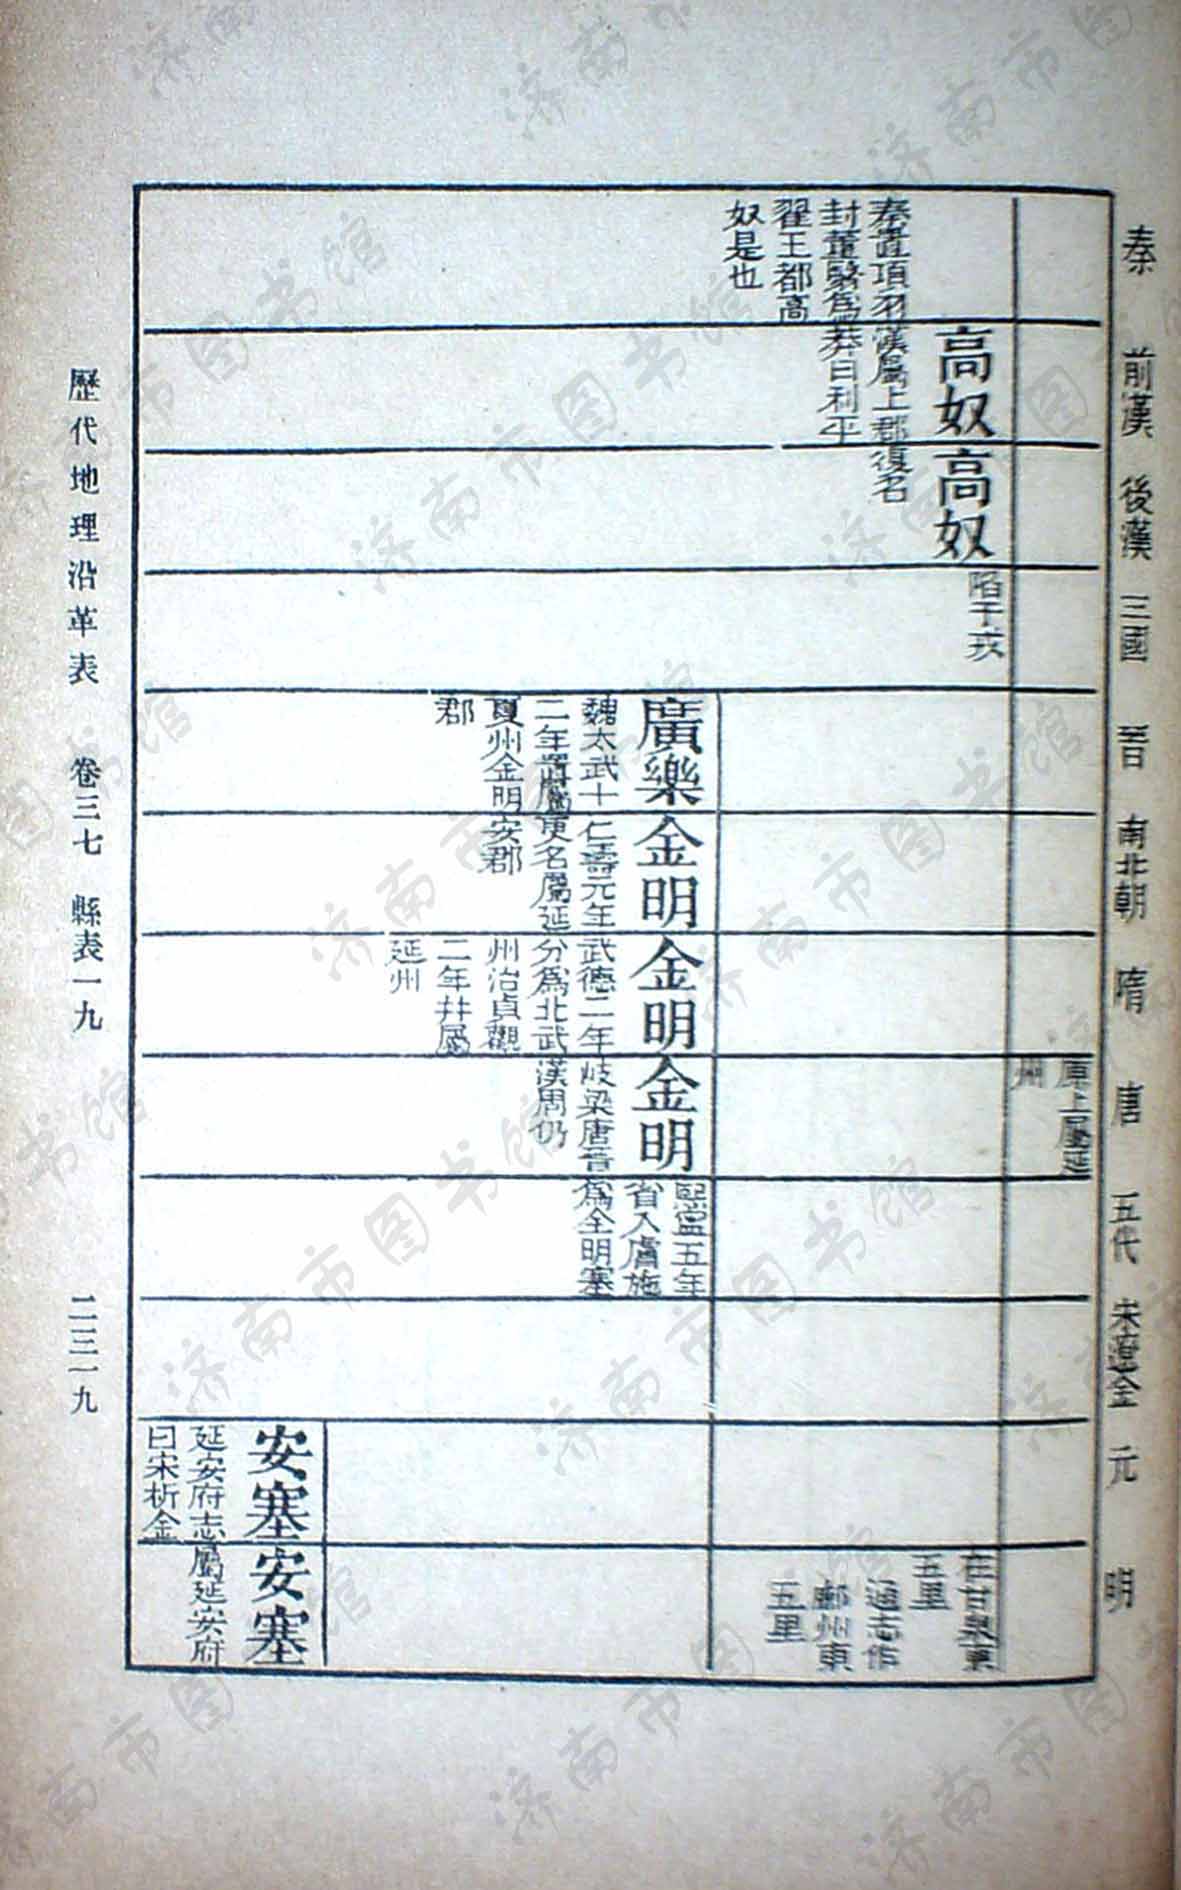 秦
前漢
後漢
三國
晋
南北朝
隋
唐
五代
宋遼金
元
明
原上屬延
州
高奴
秦置項羽
封董翳爲
翟王都高
奴是也
漢屬上郡
莽曰利平
高奴
復名
陷于戎
在甘泉東
五里
通志作
鄜州東
五里
廣樂
魏太武十
二年置屬
夏州金明
郡
金明
仁壽元年
更名屬延
安郡
金明
武德二年
分爲北武
州治貞觀
二年并屬
延州
金明
岐梁唐晋
漢周仍
熙寧五年
省入膚施
爲金明寨
安塞
延安府志
曰宋析金
安塞
屬延安府
歷代地理沿革表 卷三七 縣表一九 二三一九
济南市图书馆